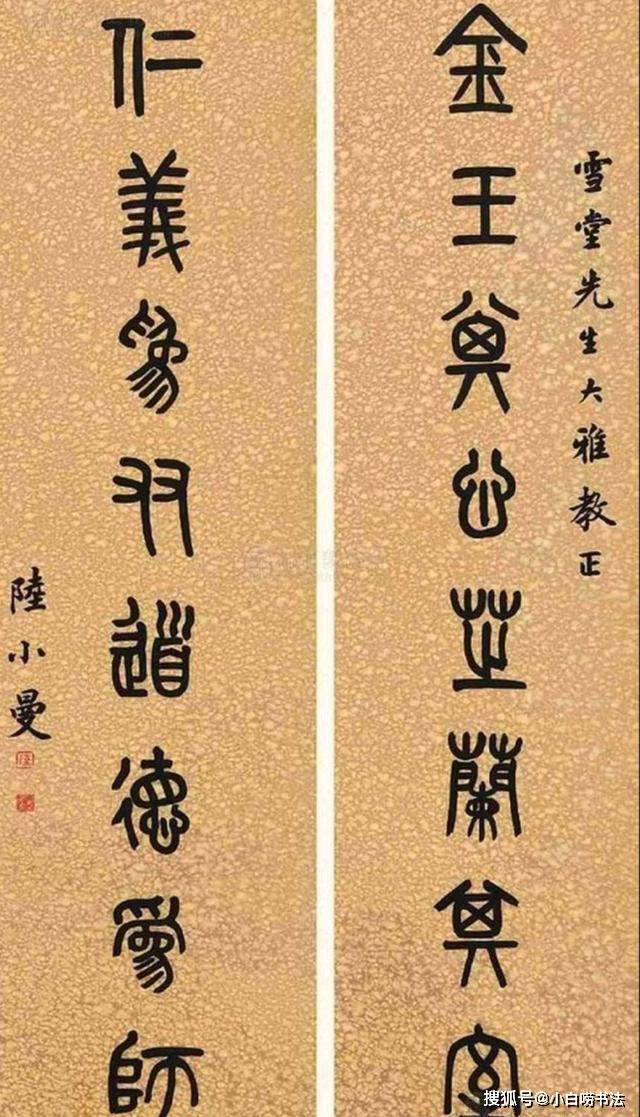 雪堂先生大雅教正
金玉其心芝蘭其室
仁義為友道德為師
陸小曼
搜狐号@小白唠书法